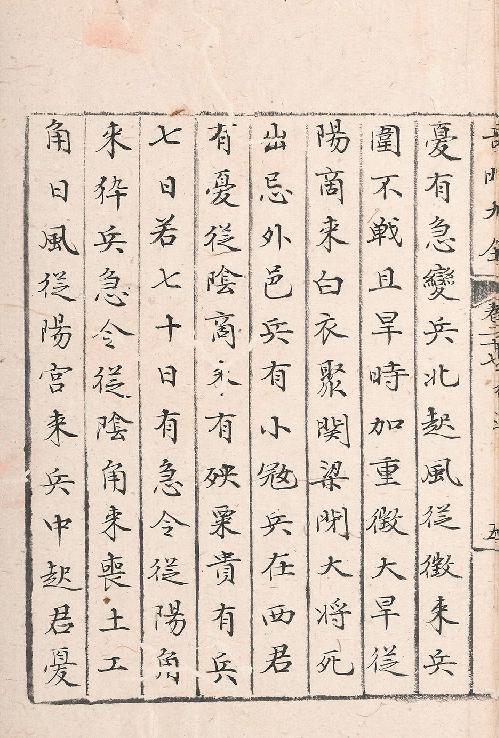 憂有急變兵北起風從徵来兵
圍不戦且旱時加重徴大旱從
陽商来白衣聚関梁閉大将死
出忌外邑兵有小冦兵在西君
有憂從陰商来有殃粟貴有兵
七日若七十日有急令從陽角
来猝兵急令從陰角来喪土工
角日風從陽宫来兵中起君憂